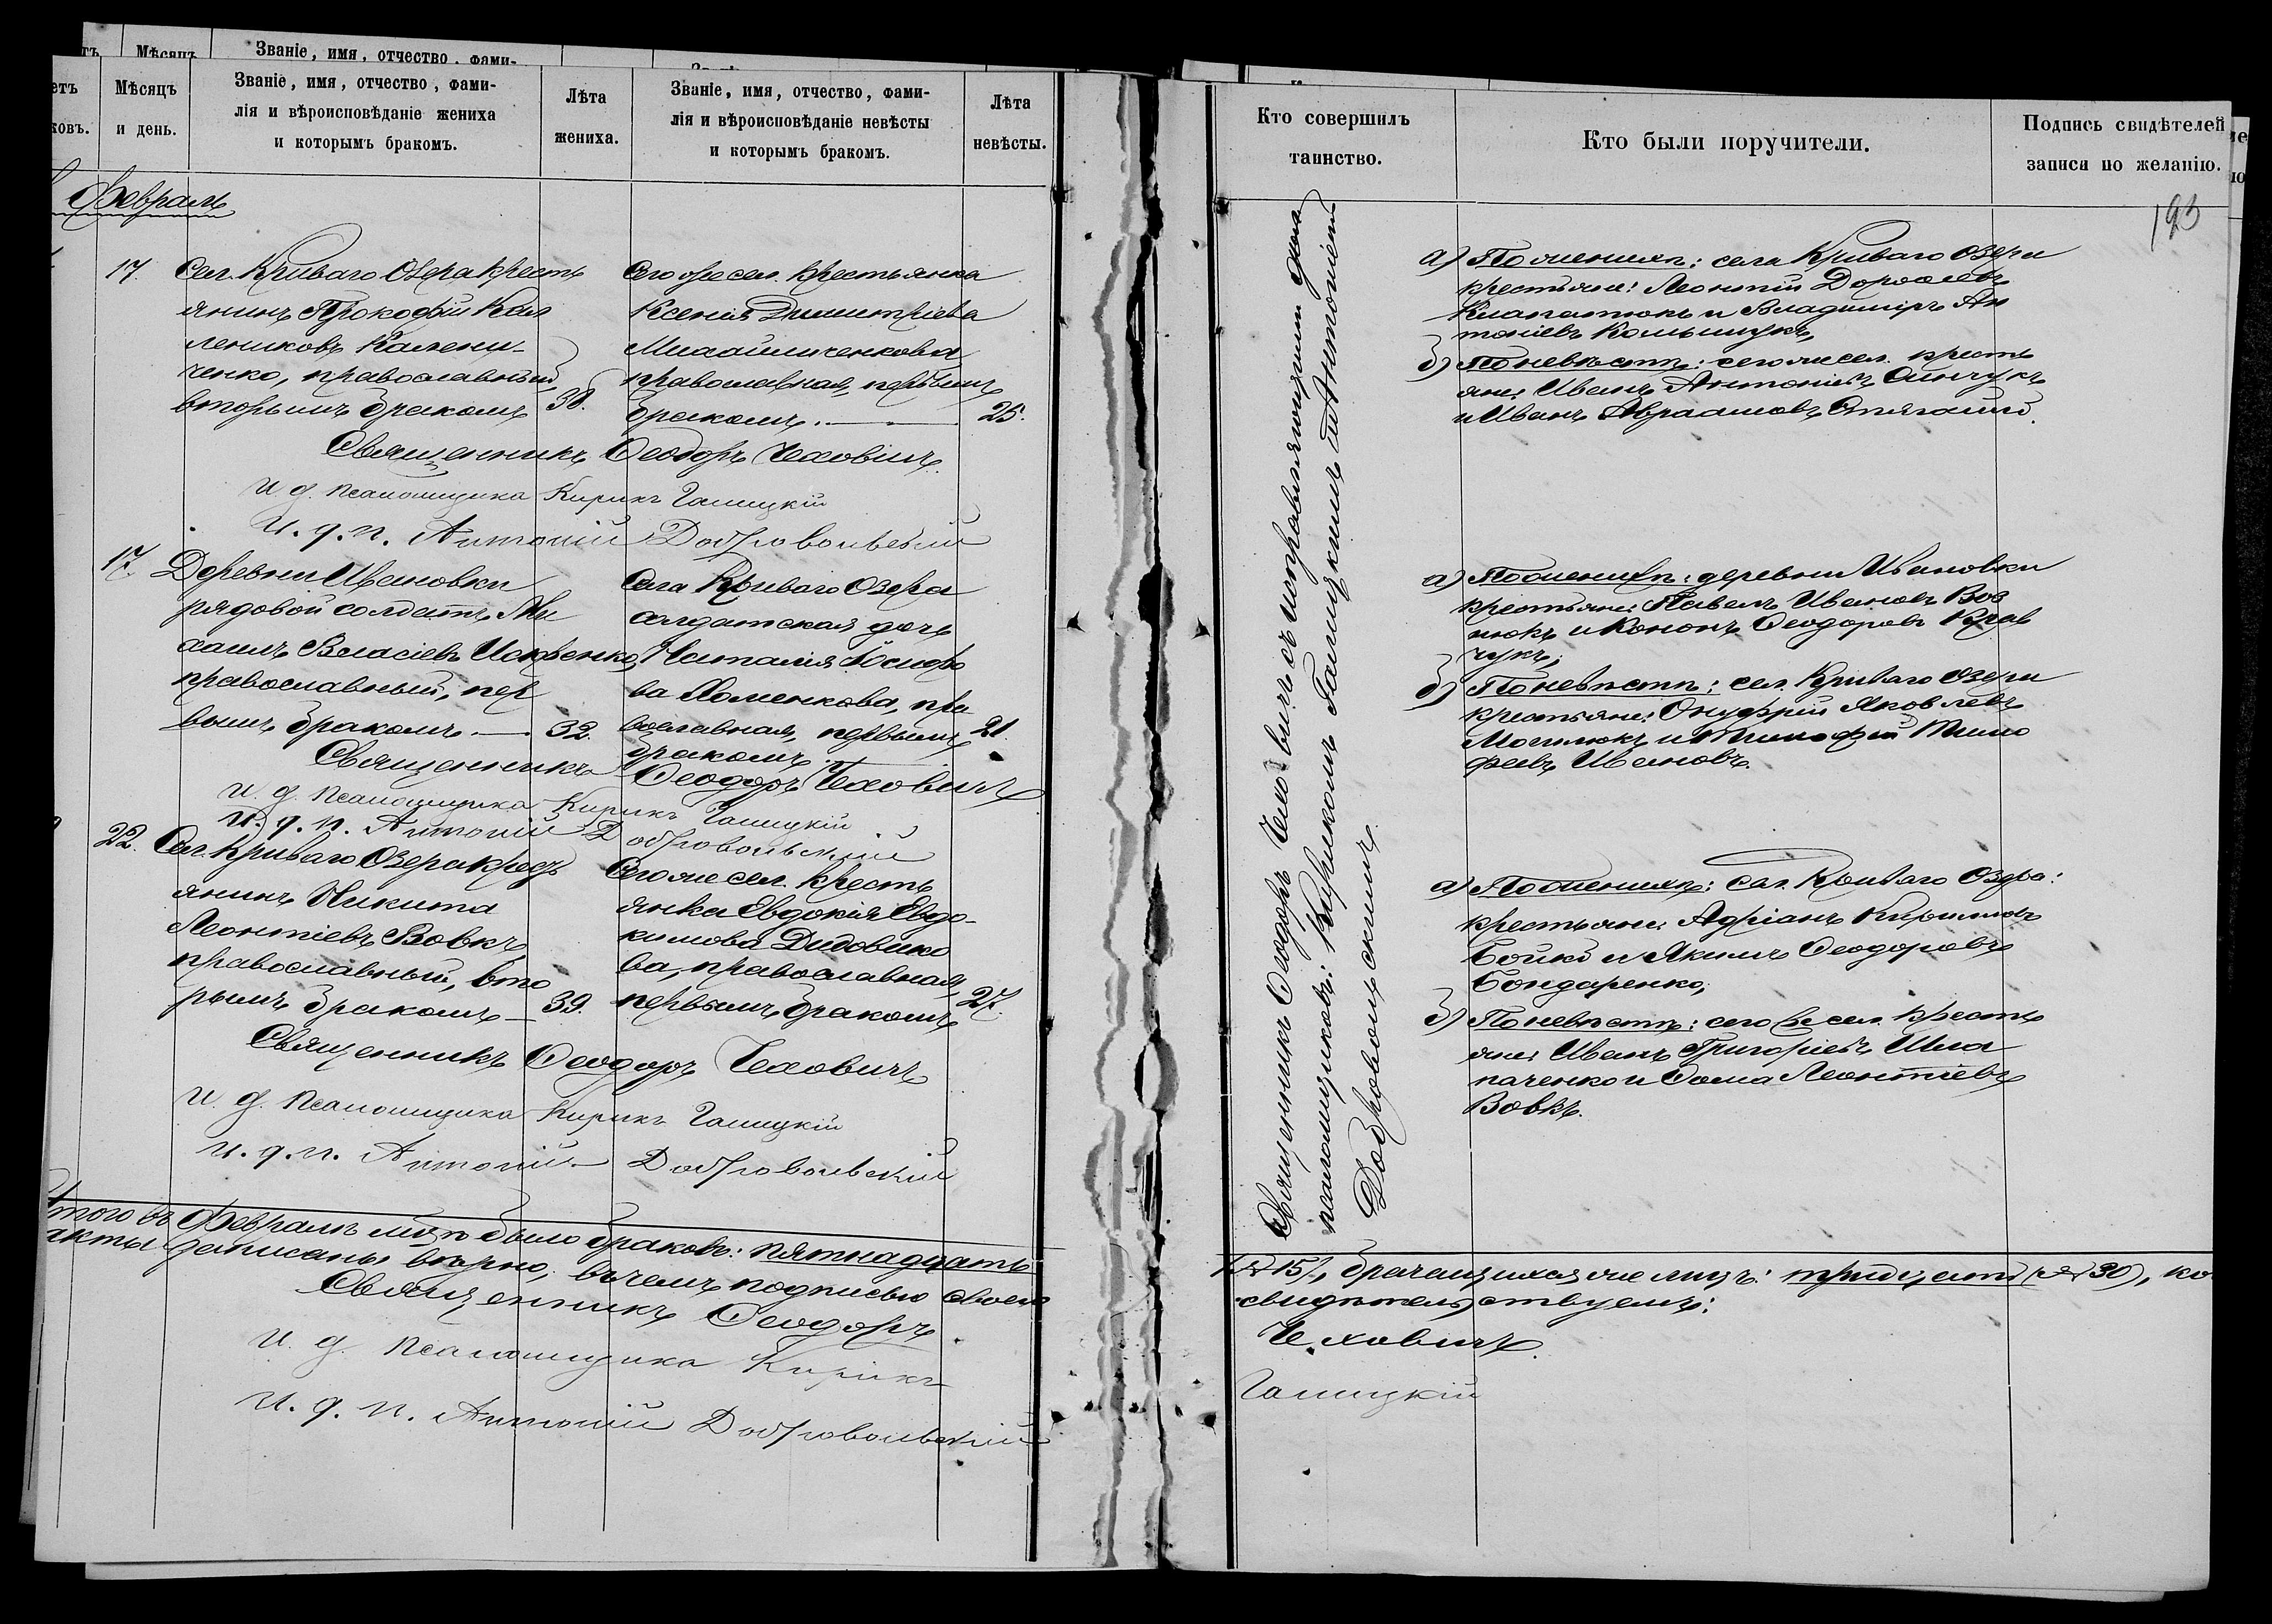 Званіе, имя, отчество, фами-
Мѣсяцъ
етъ
ковъ.
Мѣсяцъ
и день.
Званіе, имя, отчество, фами-
лія и вѣроисповѣданіе жениха
и которымъ бракомъ.
Лѣта
жениха.
Званіе, имя, отчество, фами-
лія и вѣроисповѣданіе невѣсты
и которымъ бракомъ.
Лѣта
невѣсты.
Февраль
17.
Сел. Криваго Озера кресть
янинъ Прокофій Кал
лениковъ Калени-
ченко, православный,
вторымъ бракомъ
38.
Сего же сел. крестьянка
Ксенія Димитріева
Михайличенкова
православная, первымъ
бракомъ.
25.
Священникъ Ѳеодоръ Чеховичъ.
И. д. псаломщика Кирикъ Галицкій
И. д. п. Антоній Добровольскій
17.
Деревни Ивановки
рядовой солдатъ Ми
хаилъ Власіевъ
православный, пер
вымъ бракомъ
32.
Села Криваго Озера
солдатская дочь
Наталія Іосифо
ва Хоменкова, пра
вославная, первымъ
бракомъ.
21.
Священникъ Ѳеодоръ Чеховичъ
И. д. псаломщика Кирикъ Галицкій
И. д. п. Антоній Добровольскій
22.
Сел. Криваго Озера кресть
янинъ Никита
Леонтіевъ Вовкъ,
православный, вто
рымъ бракомъ
39.
Сего же сел. кресть
янка Евдокія Евдо-
кимова Дидовико
ва, православная,
первымъ бракомъ
27.
Священникъ Ѳеодоръ Чеховичъ
И. д. псаломщика Кирикъ Галицкій
И. д. п. Антоній Добровольскій
Итого въ Февралѣ м-цѣ было браковъ: пятнадцать
акты записаны вѣрно, въ чемъ подписью своею
Священникъ Ѳеодоръ
И. д. псаломщика Кирикъ
И. д. п. Антоній Добровольскій
Кто совершилъ
таинство.
Кто были поручители.
Подпись свидѣтелей
записи по желанію.
193
Священникъ Ѳеодоръ Чеховичъ съ исправляющими долж
псаломщиковъ: Кирикомъ Галицкимъ и Антоніемъ
Добровольскимъ.
а) По женихѣ: села Криваго Озера
крестьяне: Леонтій Дороѳеевъ
Клапатюкъ и Владиміръ Ан
тоніевъ
б) По невѣстѣ: сего же сел. кресть
яне: Иванъ Антоніевъ
и Иванъ Авраамовъ
а) По женихѣ: деревни Ивановки
крестьяне: Павелъ Ивановъ Воз
нюкъ и Кононъ Ѳеодоровъ Крав
чукъ;
б) По невѣстѣ: сел. Криваго Озера
крестьяне: Онуфрій Яковлевъ
Могилюкъ и Тимофей Тимо
феевъ Ивановъ.
а) По женихѣ: сел. Криваго Озера:
крестьяне: Адріанъ Кирилловъ
Бойко и Якимъ Ѳеодоровъ
Бондаренко;
б) По невѣстѣ: сего же сел. кресть
яне: Иванъ Григоріевъ Шла
паченко и Ѳома Леонтіевъ
Вовкъ.
(№ 15), брачащихся же лицъ: тридцать (№ 30), ко
свидѣтельствуемъ:
Чеховичъ.
Галицкій